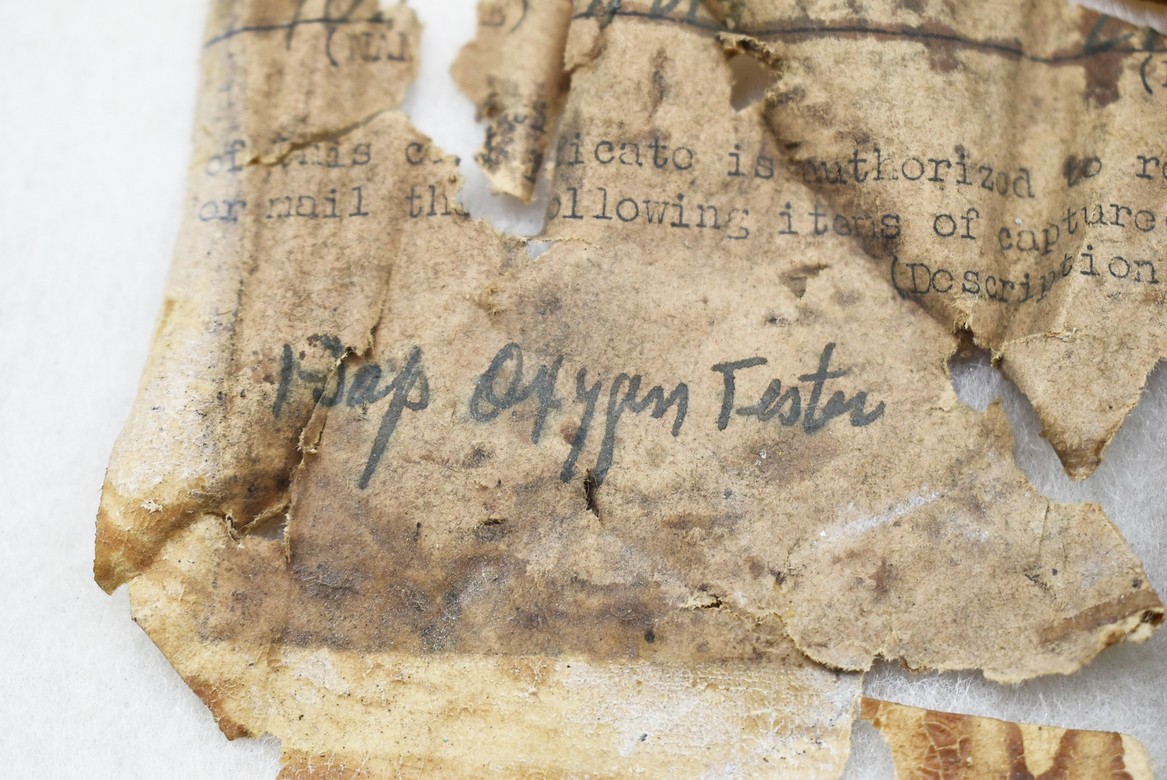 of this certificate is authorized to
or mail the following items of capture
(Description
1 Jap Oxygen Tester